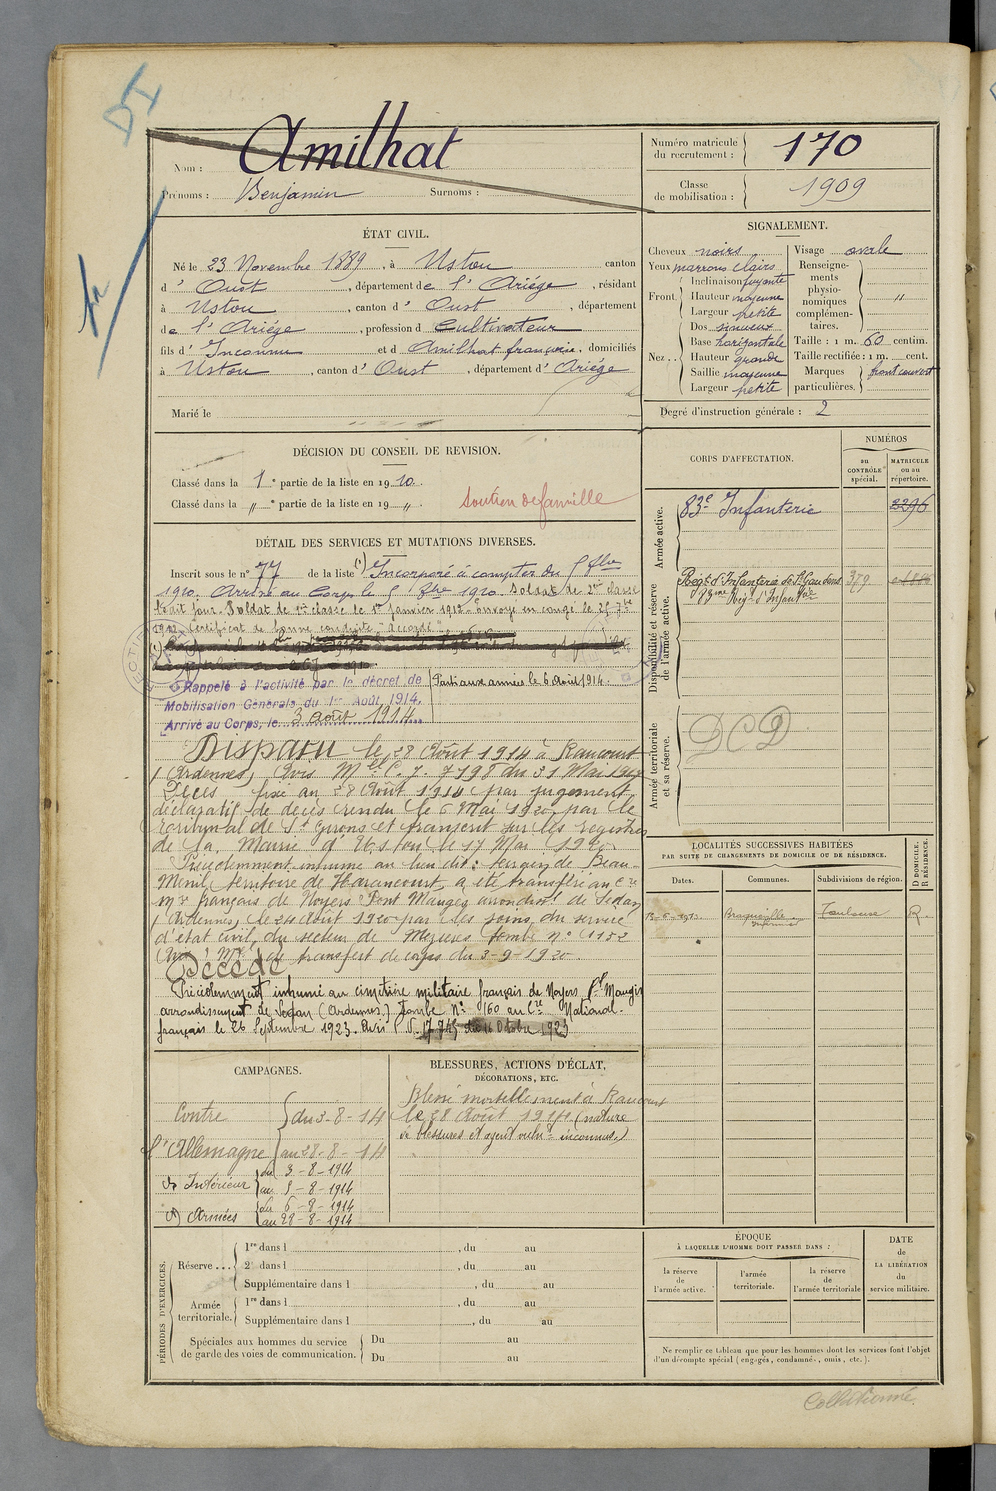 Nom : Amilhat
Prénoms : Benjamin Surnoms :
Numéro matricule du recrutement : 170
Classe de mobilisation : 1909
ÉTAT CIVIL.
Né le 23 Novembre 1889, à Ustou canton
d' Oust, département de l'Ariége, résidant
à Ustou, canton d' Oust, département
de l'Ariége, profession d Cultivateur
fils d' Inconnu et d Amilhat françoise, domiciliés
à Ustou, canton d' Oust, département d' Ariége
Marié le
SIGNALEMENT.
Cheveux noirs
Yeux marrons clairs
Front. Inclinaison fuyante
Hauteur moyenne
Largeur petite
Nez... Dos sinueux
Base horizontale
Hauteur grande
Saillie moyenne
Largeur petite
Visage ovale
Renseigne-
ments
physio-
nomiques
complémen-
taires. "
Taille : 1 m. 60 centim.
Taille rectifiée : 1 m. cent.
Marques particulières. front couvert
Degré d'instruction générale : 2
DÉCISION DU CONSEIL DE REVISION.
Classé dans la 1e partie de la liste en 1910.
Classé dans la " e partie de la liste en 19 ".
soutien de famille
DÉTAIL DES SERVICES ET MUTATIONS DIVERSES.
Inscrit sous le n° 77 de la liste (1) Incorporé à compter du
1910. Arrivé au Corps le 1910. Soldat de 2e classe
le dit jour. Soldat de 1re classe le 1er janvier 1912. Envoyé en congé le 25 7bre
1912. Certificat de bonne conduite "Accordé"
Rappelé à l'activité par le décret de
Mobilisation Générale du 1er Août 1914.
Arrivé au Corps, le 3 Août 1914
Parti aux armées le 6 Août 1914.
Disparu le 28 Août 1914 à Raucourt
(Ardennes) Avis Mel C. J. 7198 du 31 Mai
Décès fixé au 28 Août 1914 par jugement
déclaratif de décès rendu le 6 Mai 1920 par le
Tribunal de St Girons et transcrit sur les registres
de la Mairie d'Ustou le 17 Mai 1920
Précédemment inhumé au lieu dit : de Beau-
Ménil, territoire de Haraucourt, a été transféré au Cre
mre français de Noyers Pont Maugis arrondist de Sedan
(Ardennes) le 24 Août 1920 par les soins du service
d'état civil, du secteur de Mezières tombe n° 1152
(Avis Mel de transfert de corps du 3-9-1920
Décédé
Précédemment inhumé au cimetière militaire français de Noyers Pt Maugis
arrondissement de Sedan (Ardennes) tombe N° 160 au Cre National.
français le 26 Septembre 1923. Avis N. 17.745 du 16 Octobre 1923
CORPS D'AFFECTATION.
NUMÉROS
au CONTRÔLE spécial.
MATRICULE ou au répertoire.
Armée active.
83e Infanterie 2296
Disponibilité et réserve de l'armée active.
Régt d'Infanterie de St Gaudens 379
83ème Régt d'Infanterie
Armée territoriale et sa réserve.
DCD
LOCALITÉS SUCCESSIVES HABITÉES
PAR SUITE DE CHANGEMENTS DE DOMICILE OU DE RÉSIDENCE.
Dates. Communes. Subdivisions de région. D DOMICILE. R RÉSIDENCE.
Toulouse R.
CAMPAGNES.
Contre l'Allemagne du 3-8-14
au 28-8-14
Intérieur du 3-8-1914
au 5-8-1914
Armées du 6-8-1914
au 28-8-1914
BLESSURES, ACTIONS D'ÉCLAT,
DÉCORATIONS, ETC.
Blessé mortellement à Raucourt
le 28 Août 1914 (nature
de blessures et agent vulnt inconnus)
PÉRIODES D'EXERCICES.
Réserve... 1re dans l , du au
2e dans l , du au
Supplémentaire dans l , du au
Armée territoriale. 1re dans l , du au
Supplémentaire dans l , du au
Spéciales aux hommes du service
de garde des voies de communication. Du au
Du au
ÉPOQUE
À LAQUELLE L'HOMME DOIT PASSER DANS :
la réserve de l'armée active.
l'armée territoriale.
la réserve de l'armée territoriale
DATE de LA LIBÉRATION du service militaire.
Ne remplir ce tableau que pour les hommes dont les services font l'objet
d'un décompte spécial (engagés, condamnés, omis, etc.).
Collationné